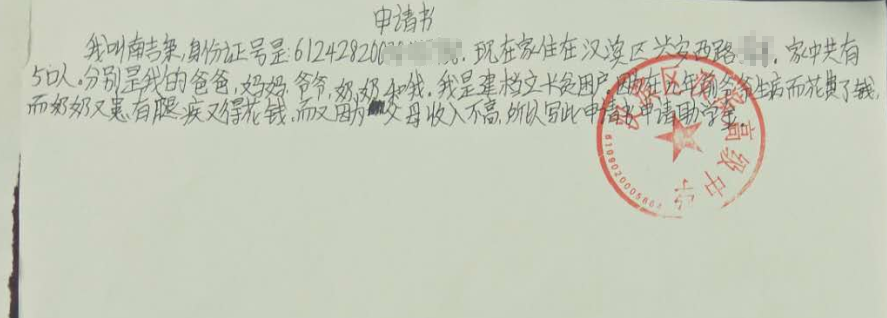 申请书
我叫南吉来,身份证号是:612428200 现在家住在汉滨区兴安西路 家中共有
5口人,分别是我的爸爸,妈妈,爷爷,奶奶和我。我是建档立卡贫困户,因为在几年前爷爷生病而花费了钱,
而奶奶又患有腿疾又得花钱,而又因为父母收入不高,所以写此申请书申请助学金。
高级中学